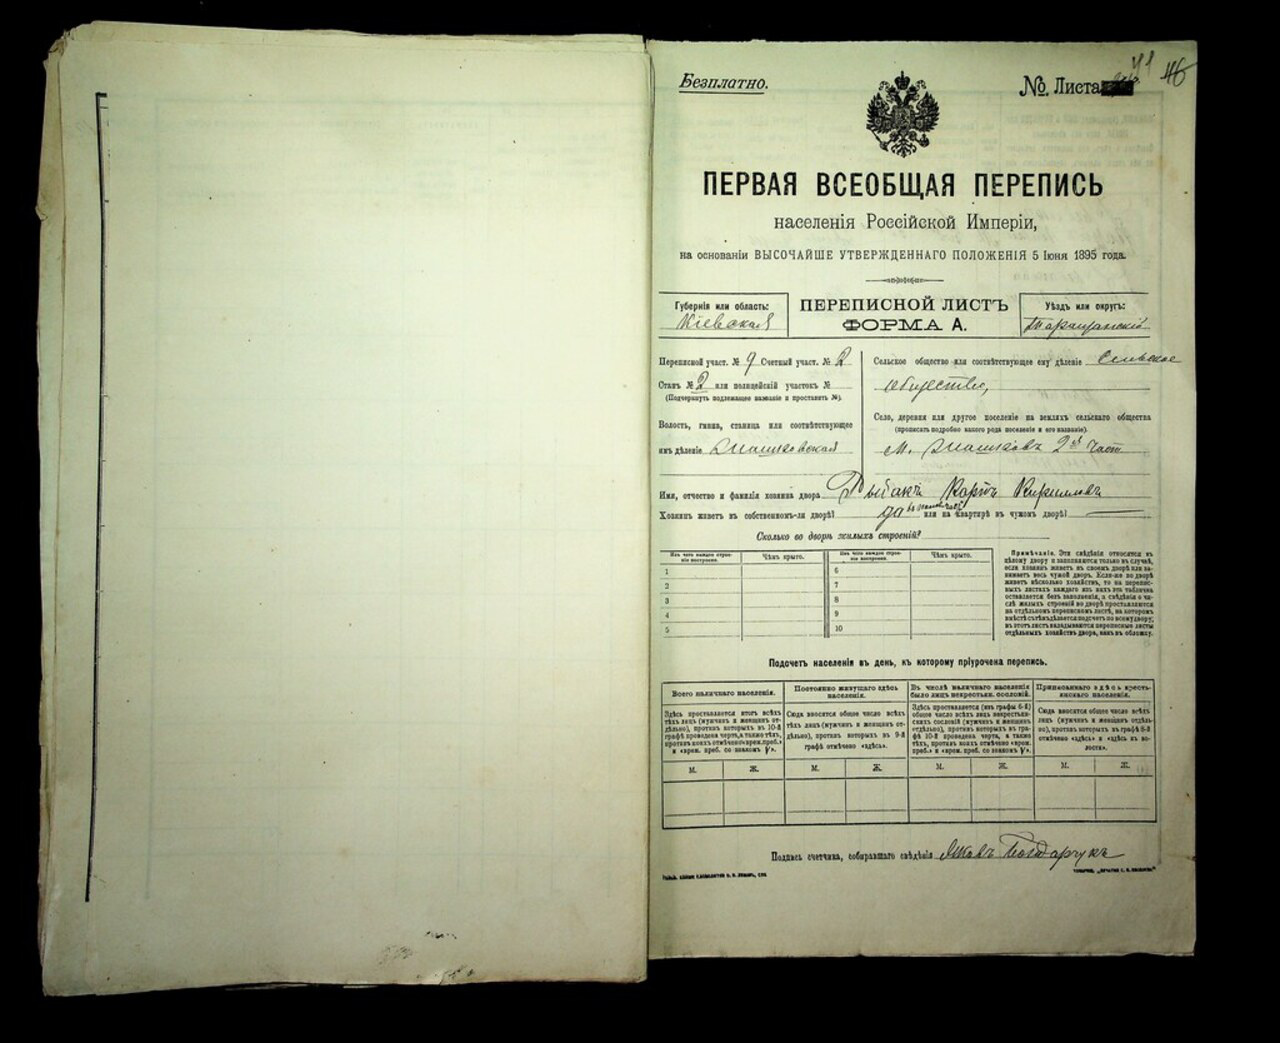 Безплатно.
№. Листа
71
46
ПЕРВАЯ ВСЕОБЩАЯ ПЕРЕПИСЬ
населенія Россійской Имперіи,
на основаніи ВЫСОЧАЙШЕ УТВЕРЖДЕННАГО ПОЛОЖЕНІЯ 5 Іюня 1895 года.
Губернія или область:
Кіевская
ПЕРЕПИСНОЙ ЛИСТЪ
ФОРМА А.
Уѣздъ или округъ:
Таращанскій
Переписной участ. № 9 Счетный участ. № 2
Станъ № 2 или полицейскій участокъ №
(Подчеркнуть подлежащее названіе и проставить №).
Волость, гмина, станица или соотвѣтствующее
имъ дѣленіе
Сельское общество или соотвѣтствующее ему дѣленіе Сельское
общество,
Село, деревня или другое поселеніе на земляхъ сельскаго общества
(прописать подробно какого рода поселеніе и его названіе).
м. 2й част
Имя, отчество и фамилія хозяина двора Рыбакъ Карпъ Кириловъ
Хозяинъ живетъ въ собственномъ-ли дворѣ? да или на квартирѣ въ чужомъ дворѣ? —
Сколько во дворѣ жилыхъ строеній?
Изъ чего каждое строеніе построено.
Чѣмъ крыто.
Изъ чего каждое строеніе построено.
Чѣмъ крыто.
1
6
2
7
3
8
4
9
5
10
Примѣчаніе. Эти свѣдѣнія относятся къ
цѣлому двору и заполняются только въ случаѣ,
если хозяинъ живетъ въ своемъ дворѣ или за-
нимаетъ весь чужой дворъ. Если-же во дворѣ
живетъ нѣсколько хозяйствъ, то на перепис-
ныхъ листахъ каждаго изъ нихъ эта табличка
оставляется безъ заполненія, а свѣдѣнія о чи-
слѣ жилыхъ строеній во дворѣ проставляются
на отдѣльномъ переписномъ листѣ, на которомъ
вмѣстѣ съ тѣмъ дѣлается подсчетъ по всему двору;
въ этотъ листъ вкладываются переписные листы
отдѣльныхъ хозяйствъ двора, какъ въ обложку.
Подсчетъ населенія въ день, къ которому пріурочена перепись.
Всего наличнаго населенія.
Здѣсь проставляется итогъ всѣхъ
тѣхъ лицъ (мужчинъ и женщинъ от-
дѣльно), противъ которыхъ въ 10-й
графѣ проведена черта, а также тѣхъ,
противъ коихъ отмѣчено «врем. преб.»
и «врем. преб. со знакомъ V».
Постоянно живущаго здѣсь
населенія.
Сюда вносятся общее число всѣхъ
тѣхъ лицъ (мужчинъ и женщинъ от-
дѣльно), противъ которыхъ въ 9-й
графѣ отмѣчено «здѣсь».
Въ числѣ наличнаго населенія
было лицъ некрестьян. сословій.
Здѣсь проставляется (изъ графы 6-й)
общее число всѣхъ лицъ некрестьян-
скихъ сословій (мужчинъ и женщинъ
отдѣльно), противъ которыхъ въ гра-
фѣ 10-й проведена черта, а также
тѣхъ, противъ коихъ отмѣчено «врем.
преб.» и «врем. преб. со знакомъ V».
Приписаннаго здѣсь кресть-
янскаго населенія.
Сюда вносятся общее число всѣхъ
лицъ (мужчинъ и женщинъ отдѣль-
но), противъ которыхъ въ графѣ 8-й
отмѣчено «здѣсь» и «здѣсь къ во-
лости».
М. Ж. М. Ж. М. Ж. М. Ж.
Подпись счетчика, собиравшаго свѣдѣнія Яковъ Бондарчукъ